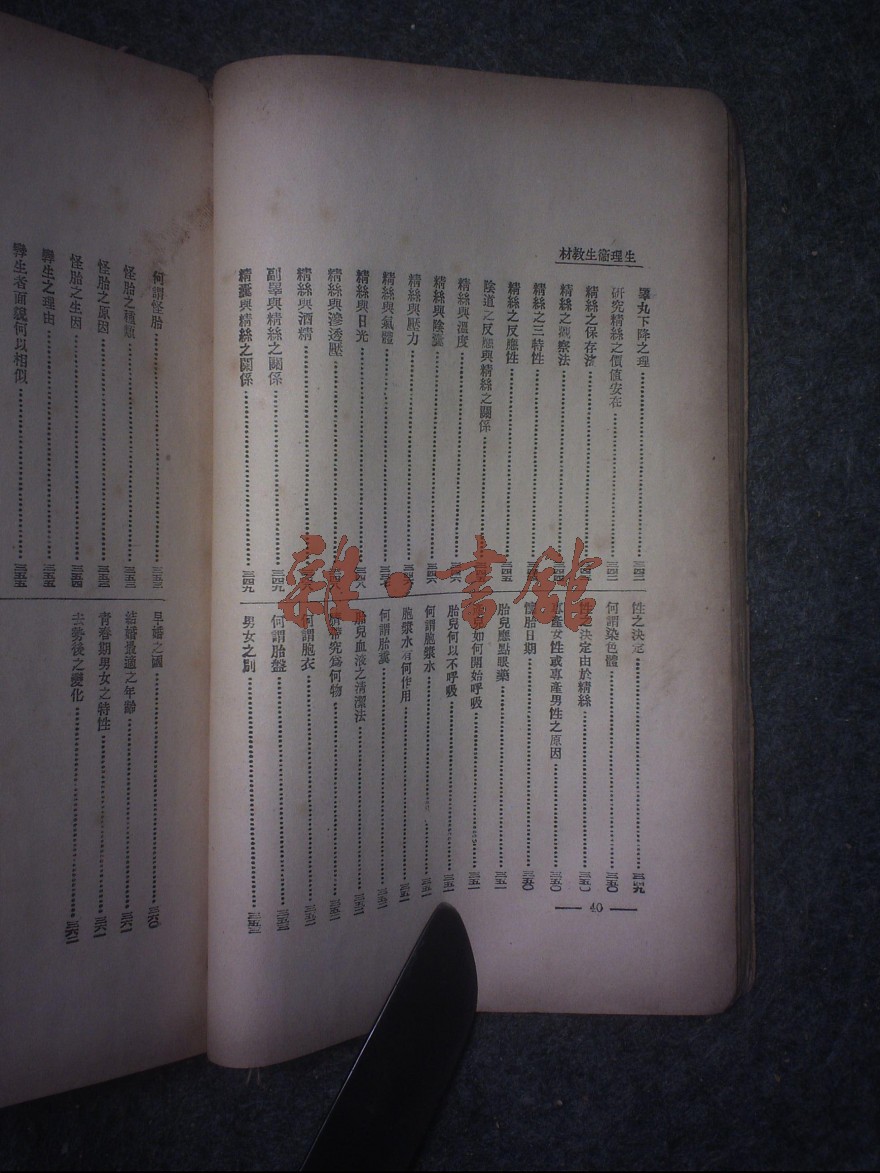 生理衞生教材
睪丸下降之理 三四二
研究精絲之價值安在 三四二
精絲之保存法
精絲之觀察法
精絲之三特性
精絲之反應性 三四五
陰道之反應與精絲之關係
精絲與溫度 三四六
精絲與陰囊 三四六
精絲與壓力
精絲與氣體
精絲與日光 三四八
精絲與滲透壓
精絲與酒精
副睪與精絲之關係 三四九
精囊與精絲之關係 三四九
性之決定 三四九
何謂染色體 三五〇
性之決定由於精絲 三五〇
專產女性或專產男性之原因 三五〇
懷胎日期 三五〇
胎兒應點眼藥 三五一
胎兒如何開始呼吸 三五一
胎兒何以不呼吸 三五一
何謂胞漿水
胞漿水有何作用
何謂胎囊
胎兒血液之清潔法
臍帶究爲何物
何謂胞衣
何謂胎盤
男女之別
— 40 —
何謂怪胎 三五三
怪胎之種類 三五三
怪胎之原因 三五三
怪胎之生因 三五四
孿生之理由 三五五
孿生者面貌何以相似 三五五
早婚之國 三六〇
結婚最適之年齡 三六一
青春期男女之特性 三六一
去勢後之變化 三六二
雜·書館